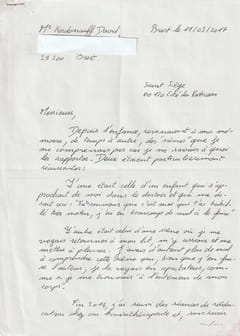 Mr Kordonouff David Brest le 11/03/2017
29 200 Brest
Saint Siège
00 120 Cité du Vatican
Messieurs,
Depuis l'enfance, revenaient à ma mé-
moire, de temps à autre, des scènes que je
ne comprenais pas car je ne savais à quoi
les rapporter. Deux étaient particulièrement
récurrentes :
L'une était celle d'un enfant qui s'ap-
prochait de moi dans le dortoir et qui me di-
rait ceu :
L'autre était celle d'une scène où je me
voyais retourner à mon lit, m'y asseoir et me
mettre à pleurer. J'avais d'autant plus de mal
à comprendre cette scène que, bien que j'en fus-
se l'auteur, je la voyais en spectateur, com-
me si je me trouvais à l'extérieur de mon
corps.
Fin 2014, j'ai suivi des séances de
relaxation chez un kinésithérapeute et,